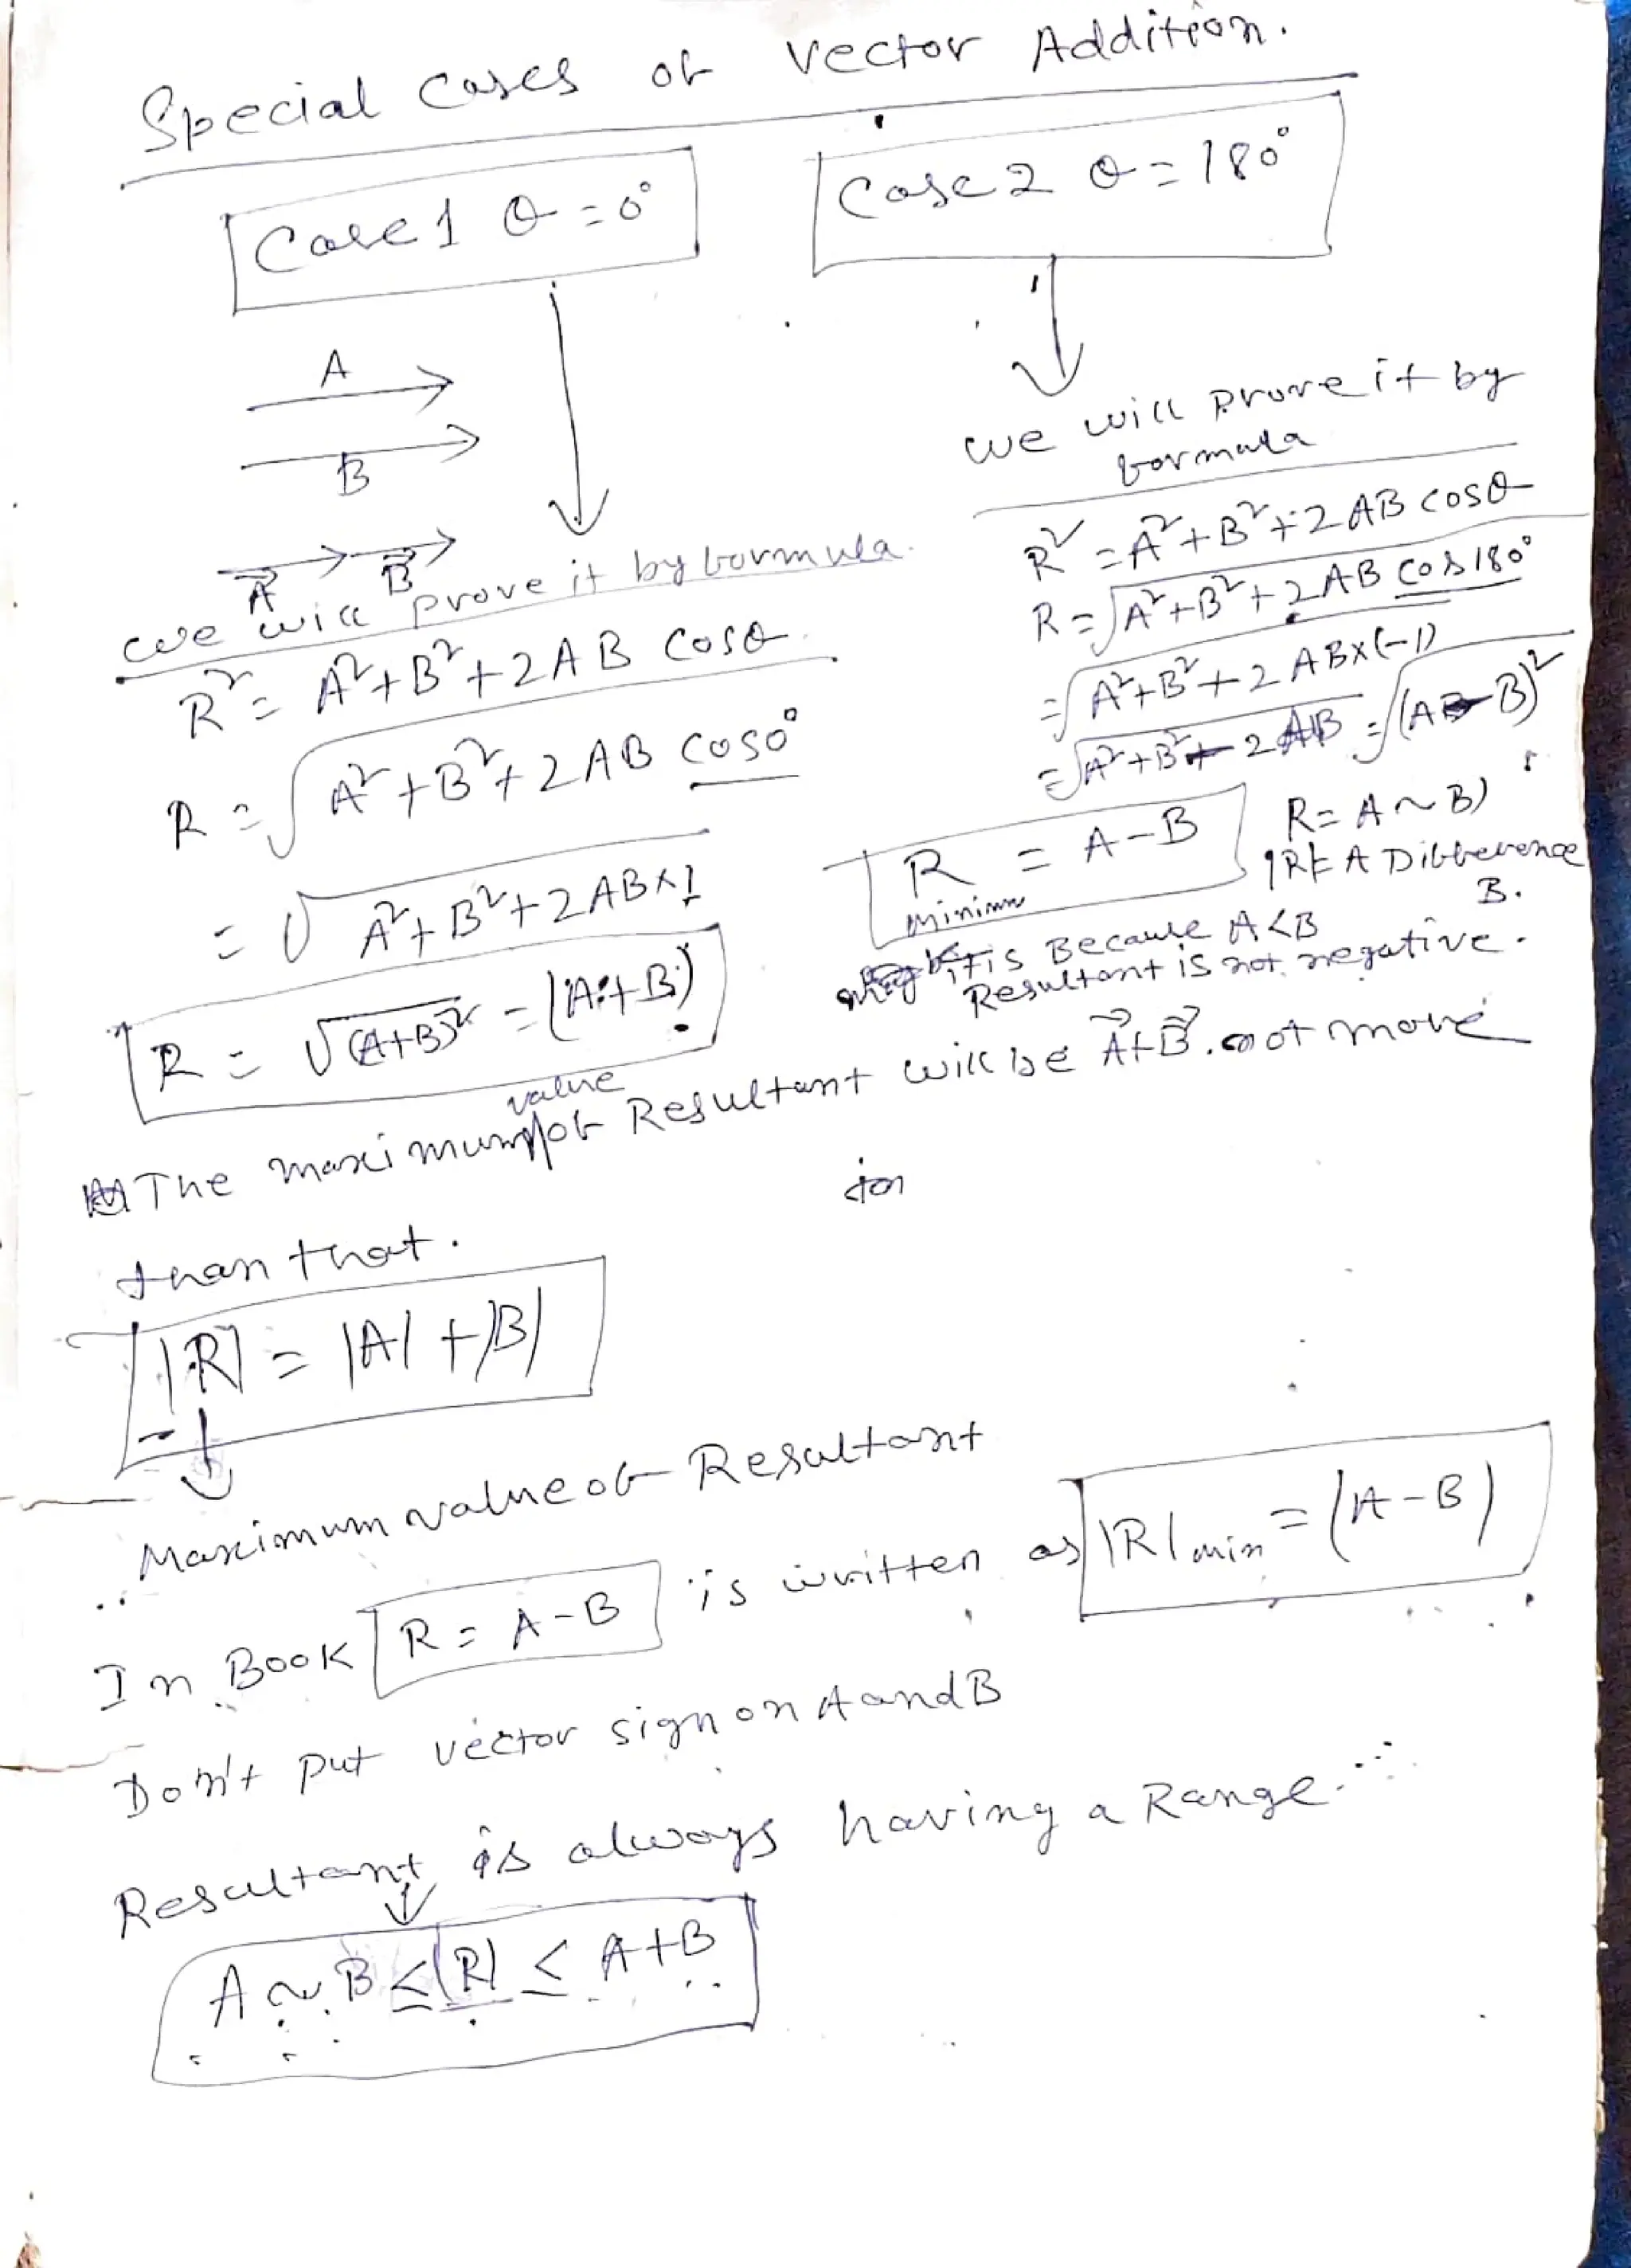 Special Cases of Vector Addition.
Case 1 θ = 0°
A
B
A⃗ B⃗
we will prove it by formula.
R² = A² + B² + 2AB cosθ
R = √(A² + B² + 2AB cos0°)
= √(A² + B² + 2AB×1)
R = √(A+B)² = (A+B)
Case 2 θ = 180°
we will prove it by
formula
R² = A² + B² + 2AB cosθ
R = √(A² + B² + 2AB cos180°)
= √(A² + B² + 2AB×(-1))
= √(A² + B² - 2AB) = √(A-B)²
R minimum = A-B
R = A ~ B)
|R| = A Difference
B.
it is Because A<B
Resultant is not negative.
The maximum value of Resultant will be A⃗+B⃗. not more
than that.
|R| = |A| + |B|
Maximum value of Resultant
In Book R = A-B is written as |R| min = (A-B)
Don't put vector sign on A and B
Resultant is always having a Range.
A ~ B ≤ |R| ≤ A+B